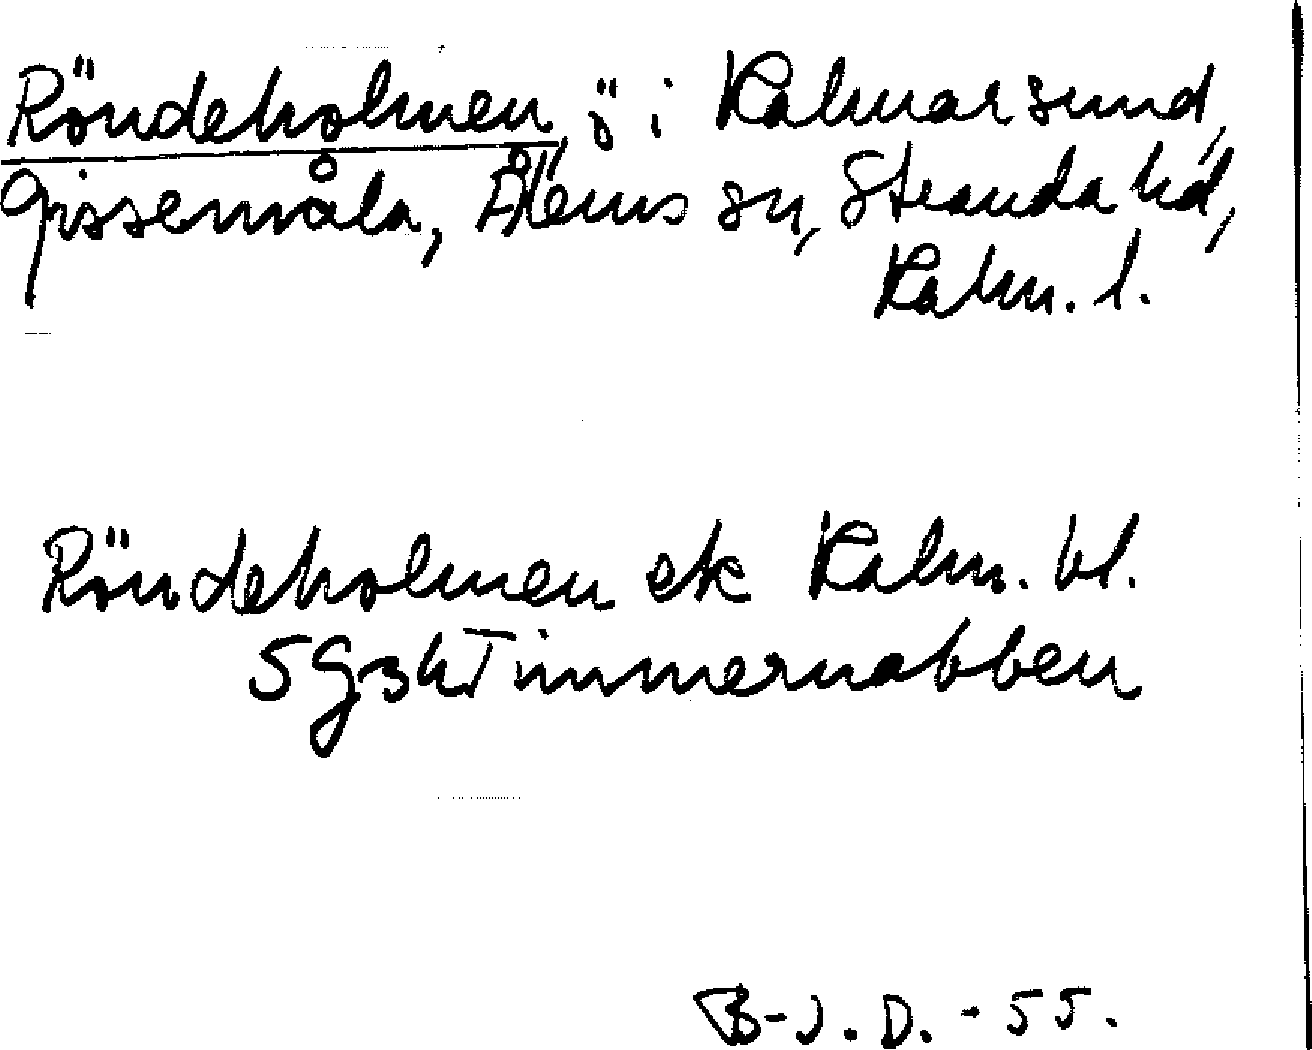 Röndeholmen, ö i Kalmarsund,
Gissemåla, Ålems sn, Stranda hd,
Kalm. l.
Röndeholmen ek Kalm. bl.
5 G3h Timmernabben
B-J.D. -55.